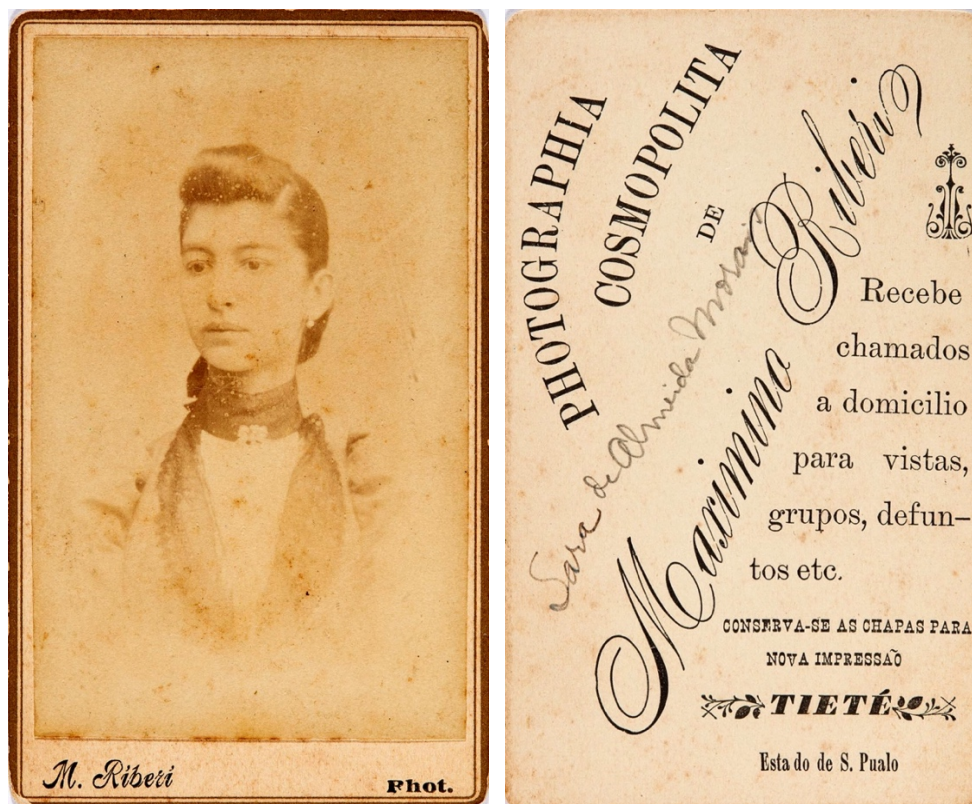 M. Riberi
Phot.
PHOTOGRAPHIA
COSMOPOLITA
DE
Maximino Riberi
Sara de Almeida Morais
Recebe
chamados
a domicilio
para vistas,
grupos, defun-
tos etc.
CONSERVA-SE AS CHAPAS PARA
NOVA IMPRESSÃO
TIETÉ
Esta do de S. Pualo